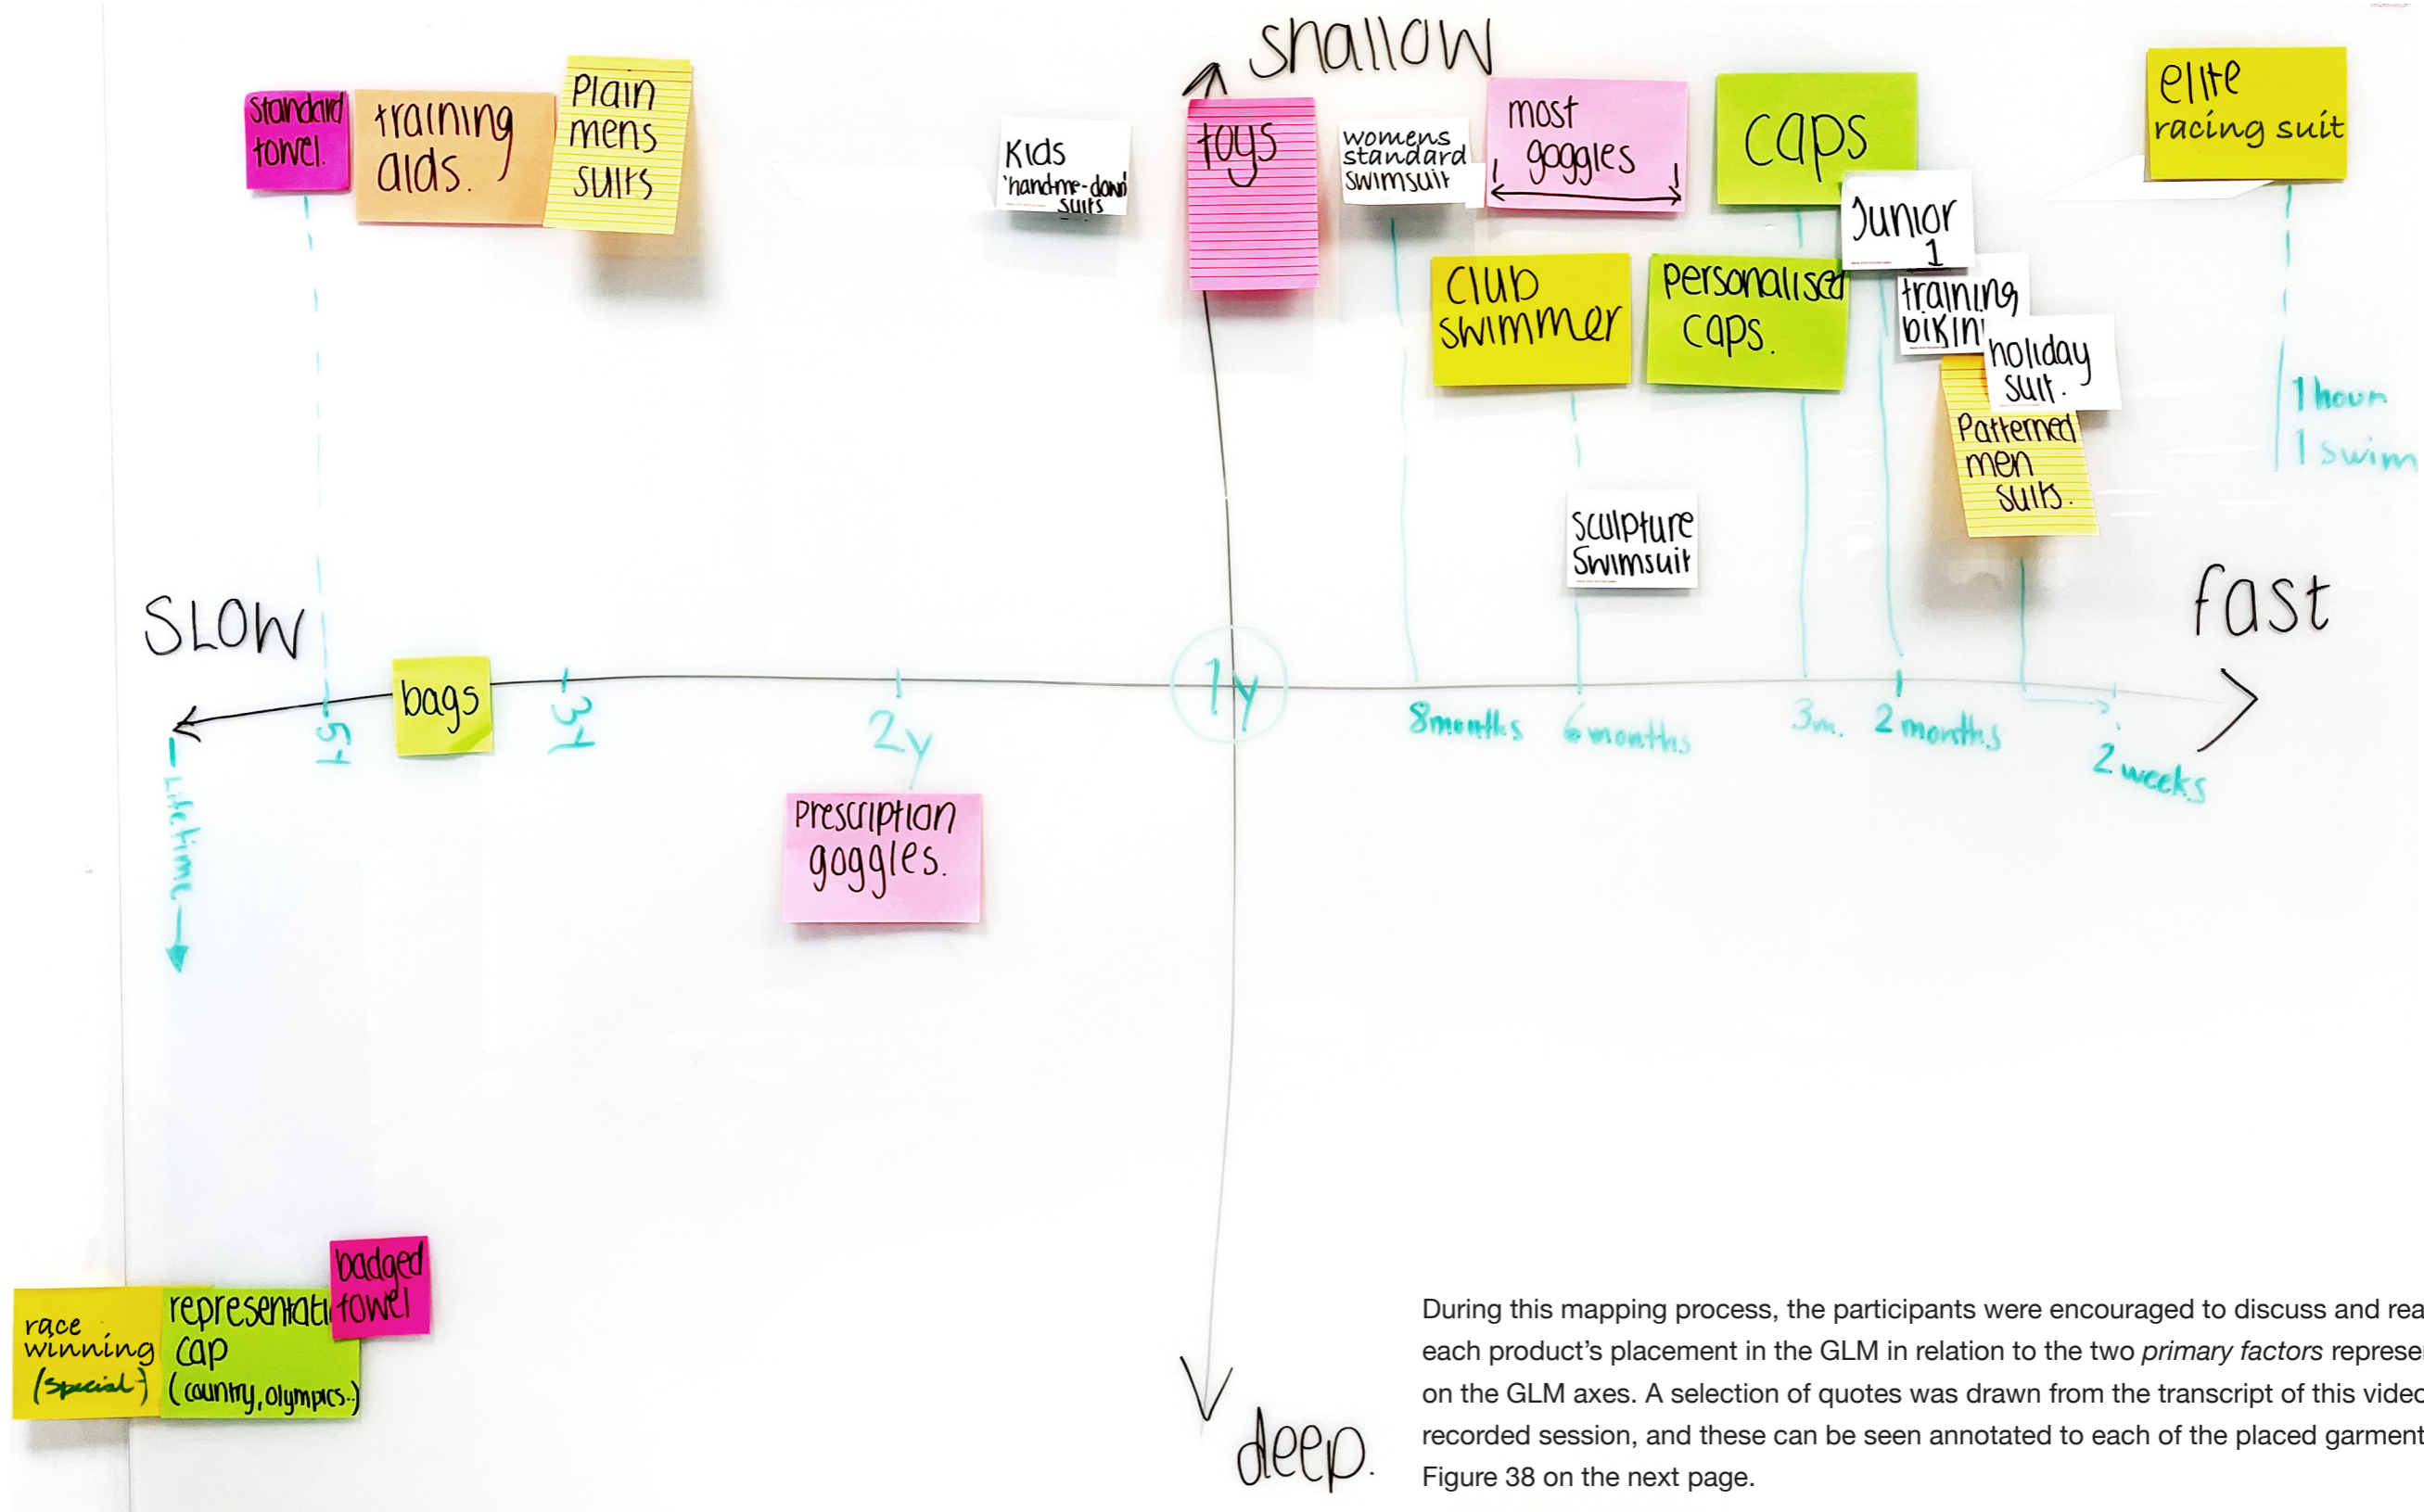 shallow
standard
towel.
training
aids.
Plain
mens
suits
Kids
'hand-me-down'
suits
toys
womens
standard
swimsuit
most
goggles
caps
elite
racing suit
Junior
1
club
swimmer
personalised
caps.
training
bikini
holiday
suit.
Patterned
men
suits.
1 hour
1 swim
sculpture
Swimsuit
SLOW
fast
5y
bags
3y
2y
1y
8months
6 months
3m.
2 months
2 weeks
Lifetime
prescription
goggles.
badged
towel
race
winning
(special)
representati
cap
(country, olympics..)
deep.
During this mapping process, the participants were encouraged to discuss and rea
each product's placement in the GLM in relation to the two primary factors represe
on the GLM axes. A selection of quotes was drawn from the transcript of this video
recorded session, and these can be seen annotated to each of the placed garment
Figure 38 on the next page.